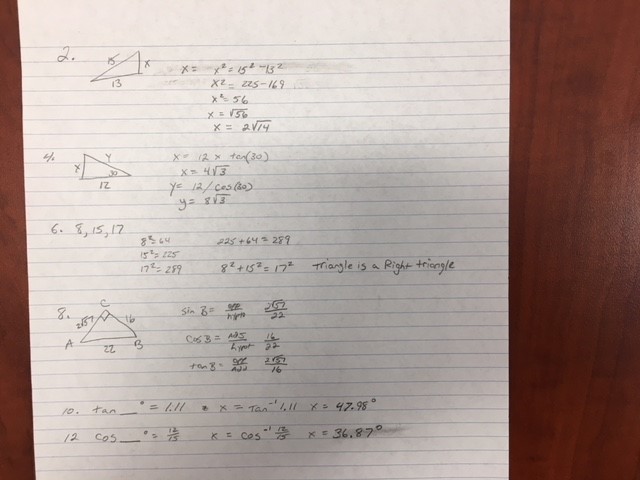 2. 15 x 13 x = x² = 15² - 13²
x² = 225 - 169
x² = 56
x = √56
x = 2√14
4. x y 30 12 x = 12 x tan(30)
x = 4√3
y = 12/cos(30)
y = 8√3
6. 8, 15, 17
8² = 64 225 + 64 = 289
15² = 225
17² = 289 8² + 15² = 17² Triangle is a Right triangle
8. C 2√57 16 A 22 B
sin B = opp/hypot 2√57/22
cos B = adj/hypot 16/22
tan B = opp/adj 2√57/16
10. tan __° = 1.11 x = Tan⁻¹ 1.11 x = 47.98°
12 cos __° = 12/15 x = cos⁻¹ 12/15 x = 36.87°